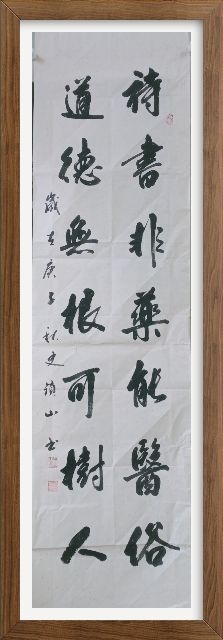 詩書非藥能醫俗
道德無根可樹人
歲在庚子秋史鎮山書